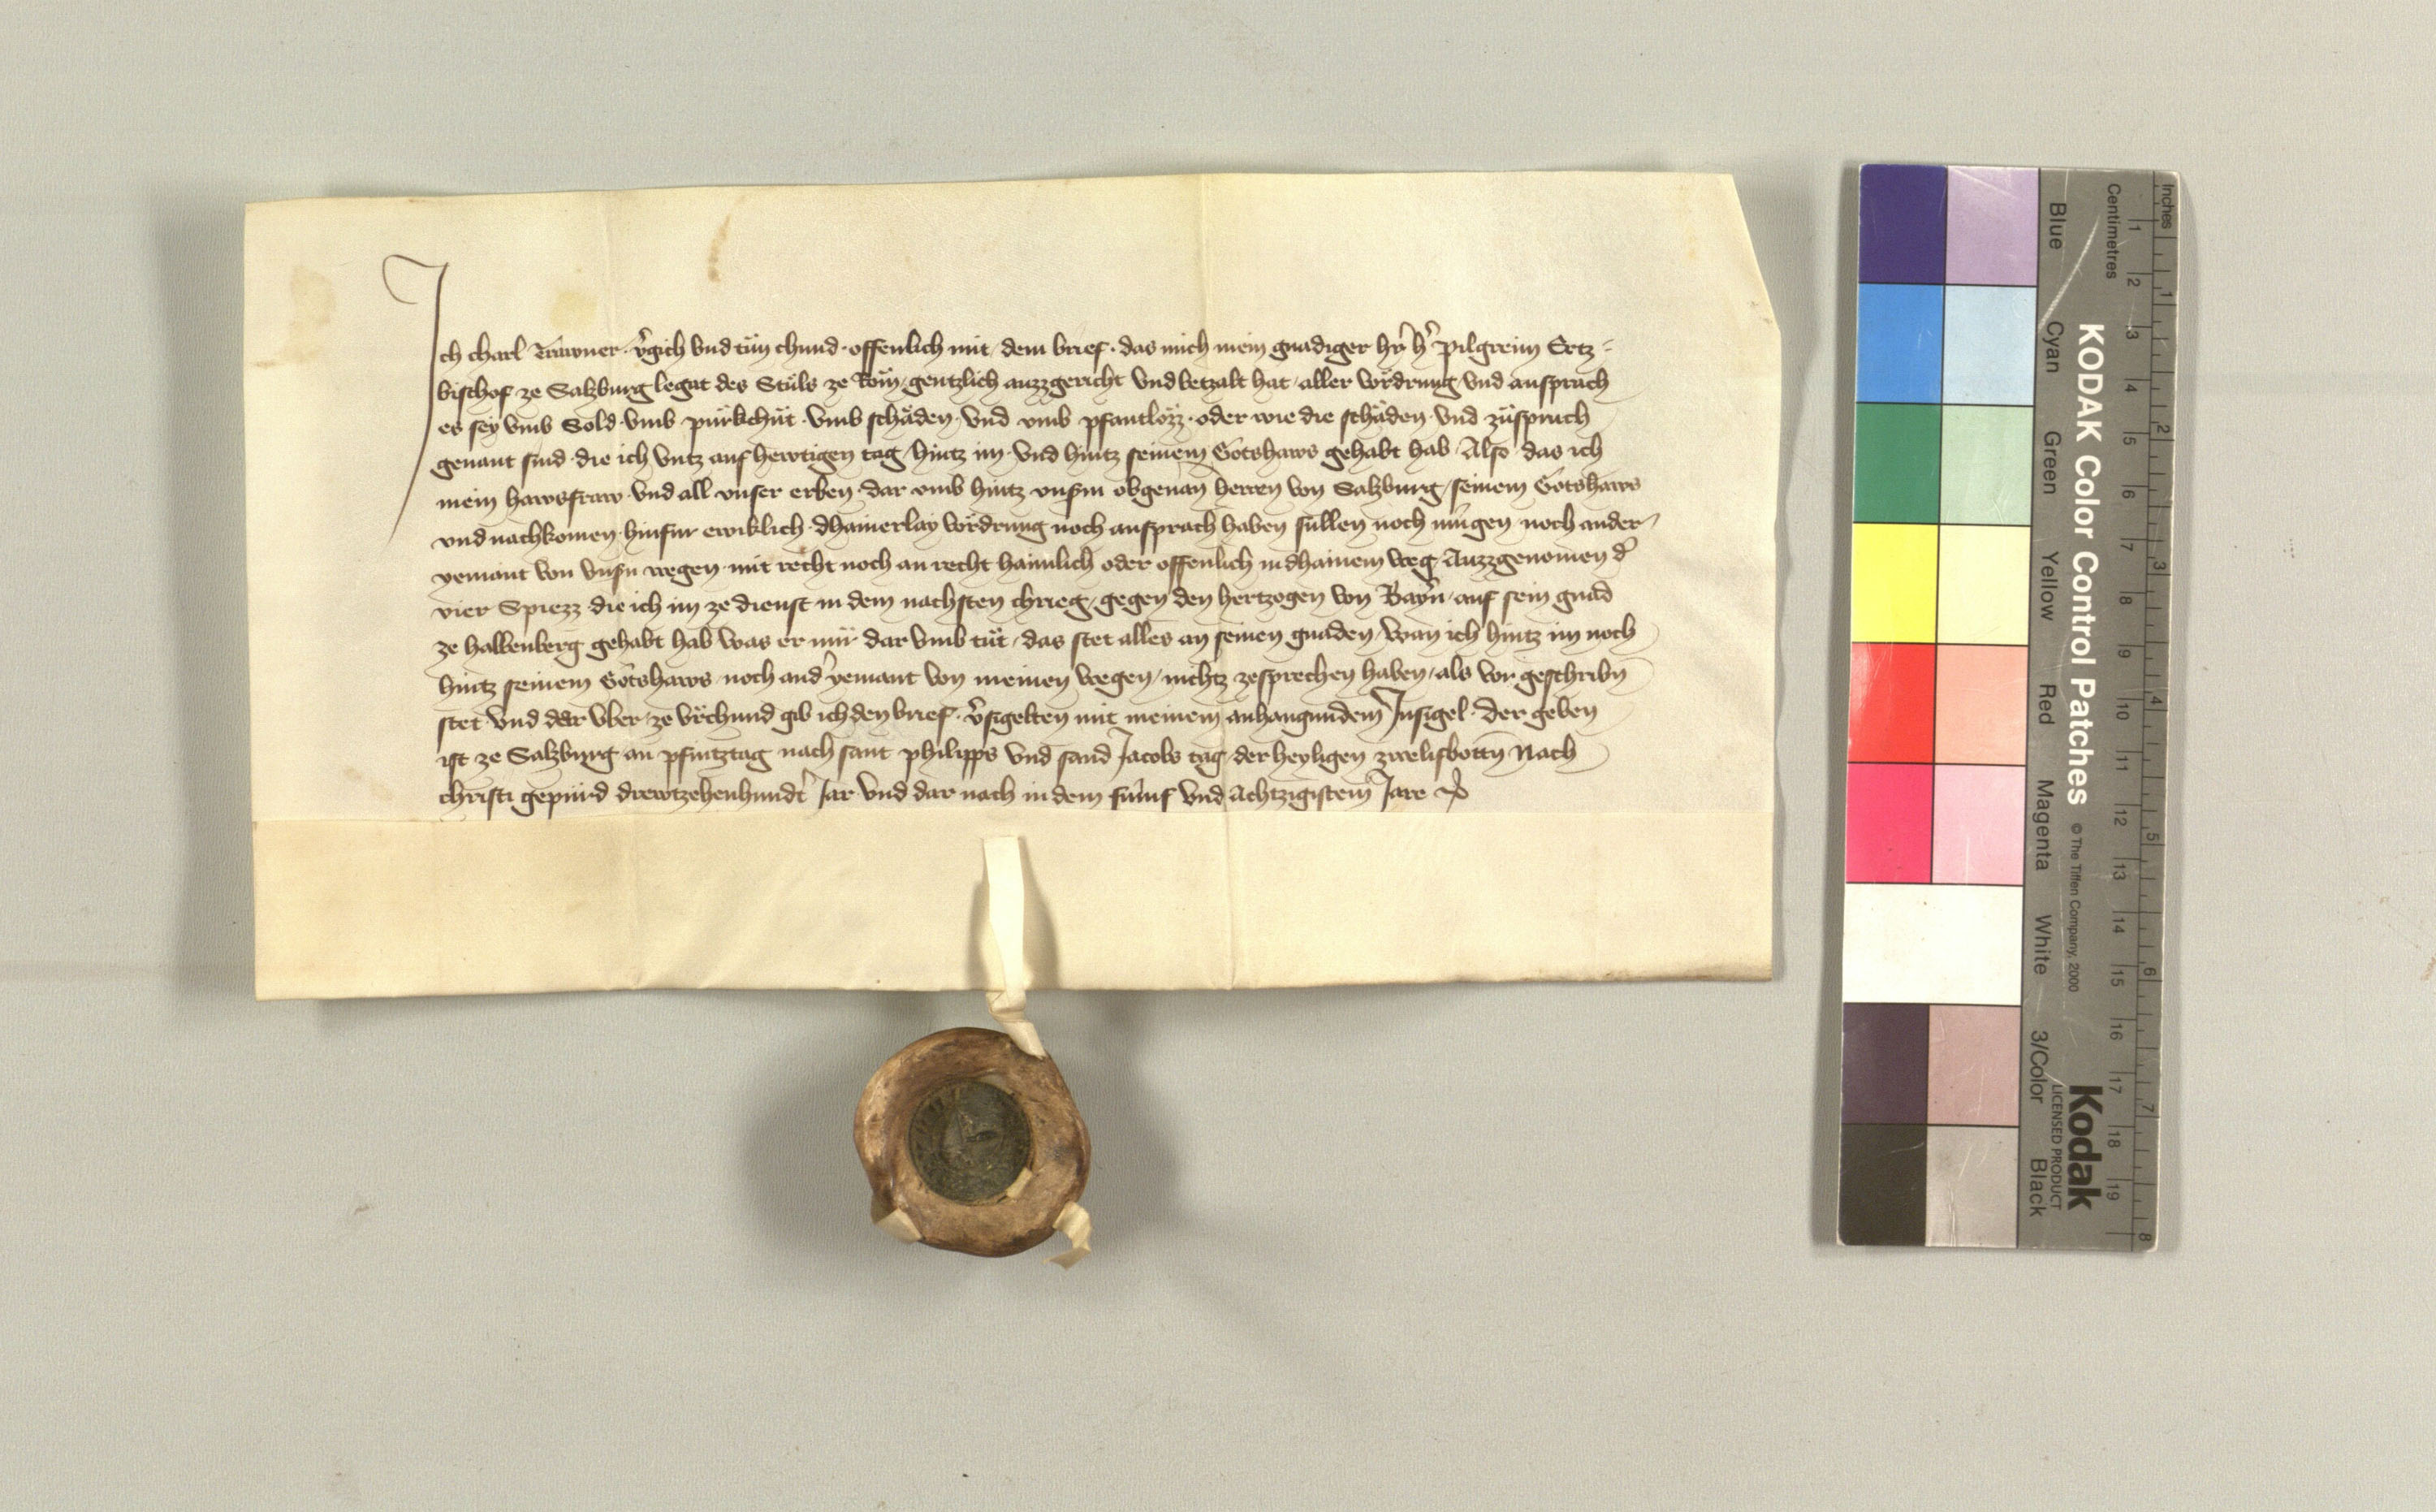 Ich charl Trawner · v̾gich vnd tůn chund · offenlich mit dem brief · das mich mein gnadiger hr̾ h̾ pilgreim Ertz=
bischof ze Salzburg legat des Stůls ze Rom gentzlich auzzgericht vnd betzalt hat aller vördrung vnd ansprach
es sey vmb Sold · vmb pürkchůt · vmb schäden · vnd vmb pfantlözz · oder wie die schäden · vnd züsprach
genant sind · die ich vntz auf hewtigen tag hintz im vnd hintz seinem Gotshaws gehabt hab · Also das ich
mein hawsfraw · vnd all vnser erben · dar vmb hintz vnſm obgenan̄ herren von Salzburg seinem Gotshaws
vnd nachkomen · hinfür ewiklich · dhainerlay vördrung noch ansprach haben süllen noch mügen noch ander
yemant von vnſn wegen · mit recht noch an recht haimlich oder offenlich in dhainem weg · Auzzgenomen d̾
vier Spiezz die ich im ze dienst in dem nachsten chrieg gegen den hertzogen von Bayrn̄ auf sein gnad
ze halbenberg gehabt hab was er mir dar vmb tůt das stet alles an seinen gnaden wan̄ ich hintz im noch
hintz seinem Gotshaws noch and̾ yemant von meinen wegen nichtz zesprechen haben als vor geschribn̄
stet · vnd dar vber ze vrchund gib ich den brief · v̾sigelten mit meinem anhangundem Insigel · der geben
ist ze Salzburg an pfintztag nach sant philipps vnd sand Jacobs tag der heyligen zwelifbottn̄ Nach
christi gepürd drewtzehenhundt̾ Jar vnd dar nach in dem fümf vnd Achtzigistem Jare
Inches
Centimetres
1 2 3 4 5 6 7 8
1 2 3 4 5 6 7 8 9 10 11 12 13 14 15 16 17 18 19
KODAK Color Control Patches
© The Tiffen Company, 2000
Kodak
LICENSED PRODUCT
Blue Cyan Green Yellow Red Magenta White 3/Color Black